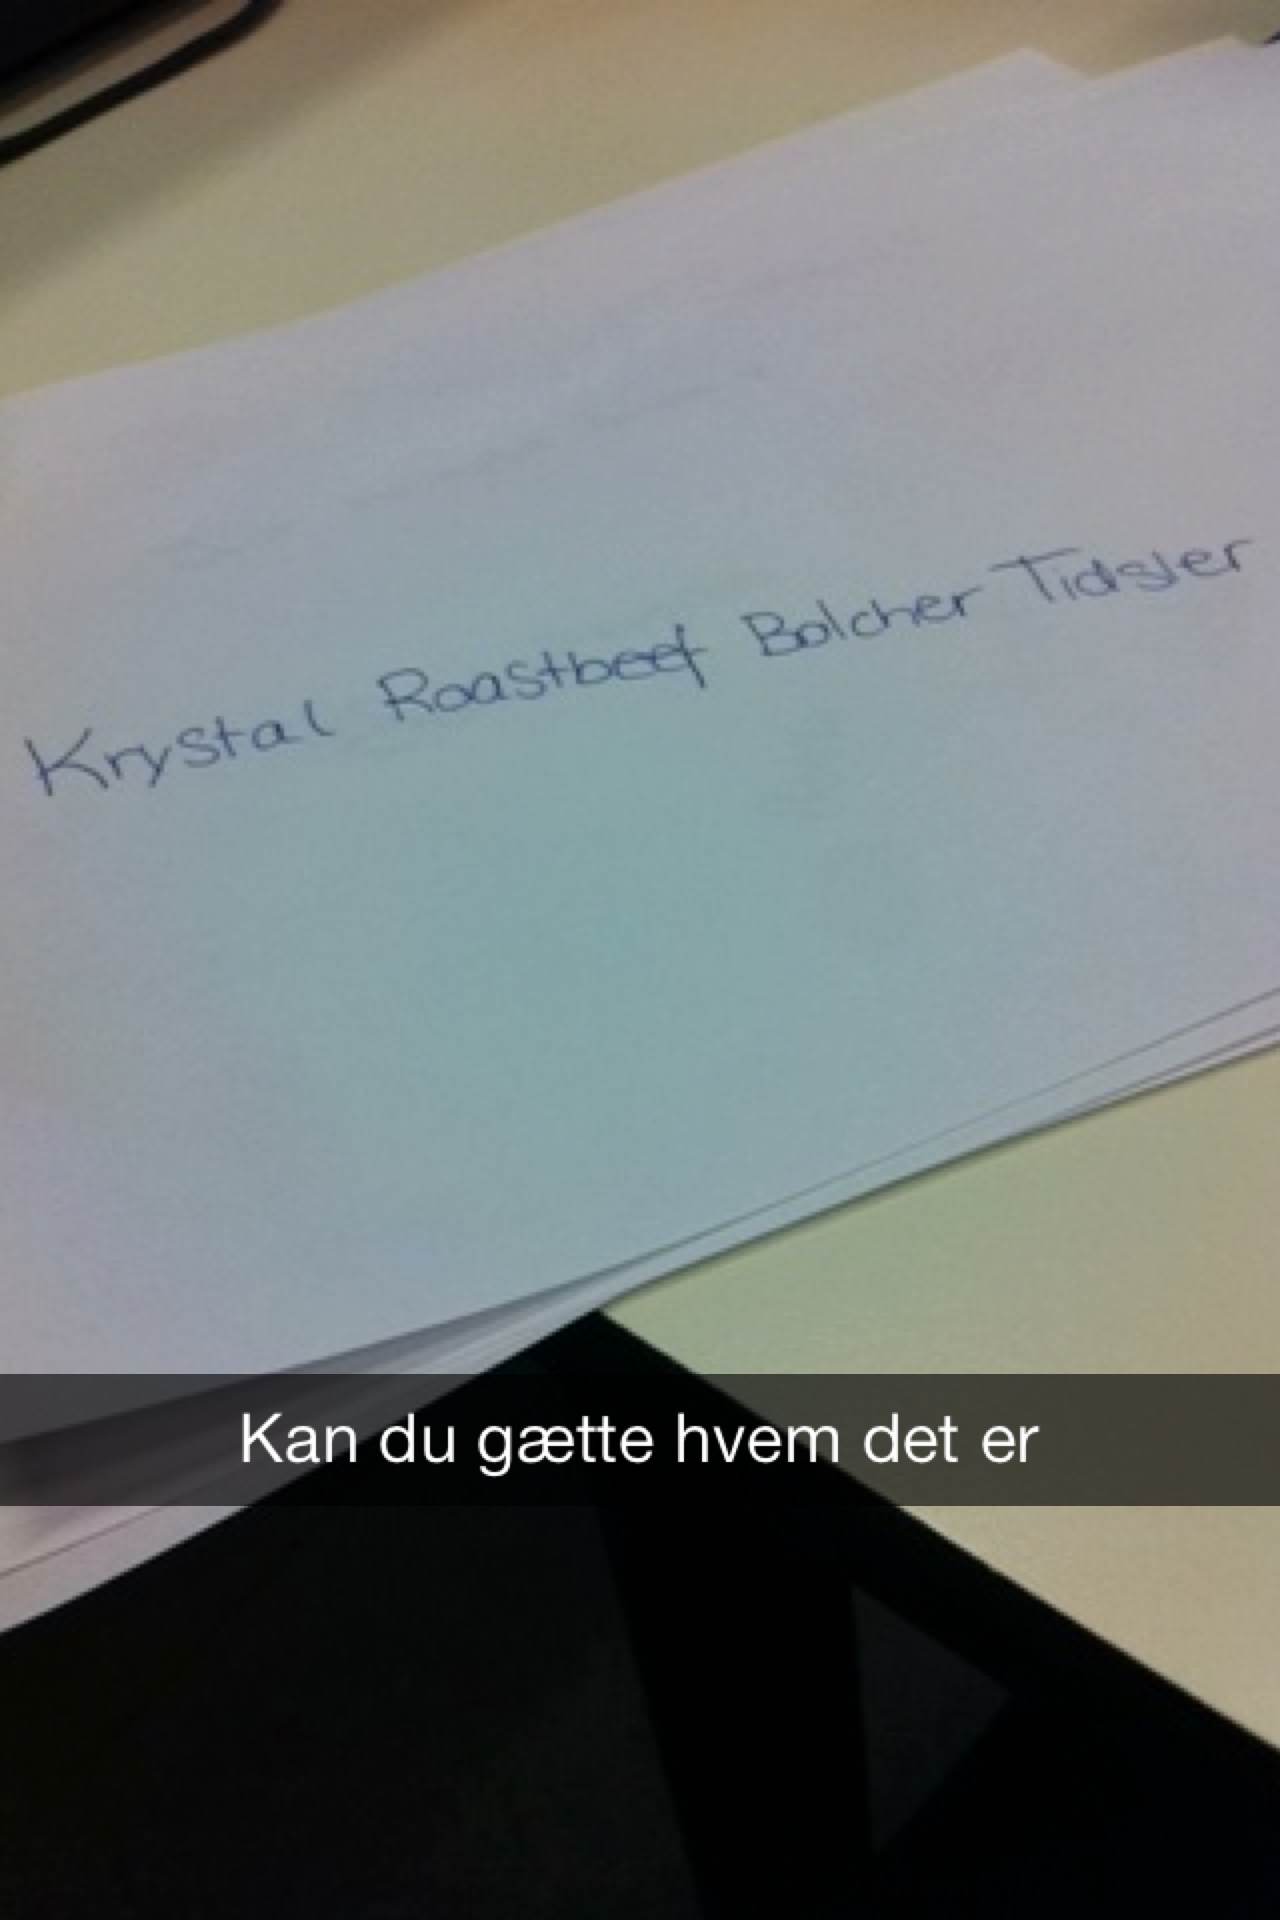 Krystal Roastbeef Bolcher Tidsler
Kan du gætte hvem det er